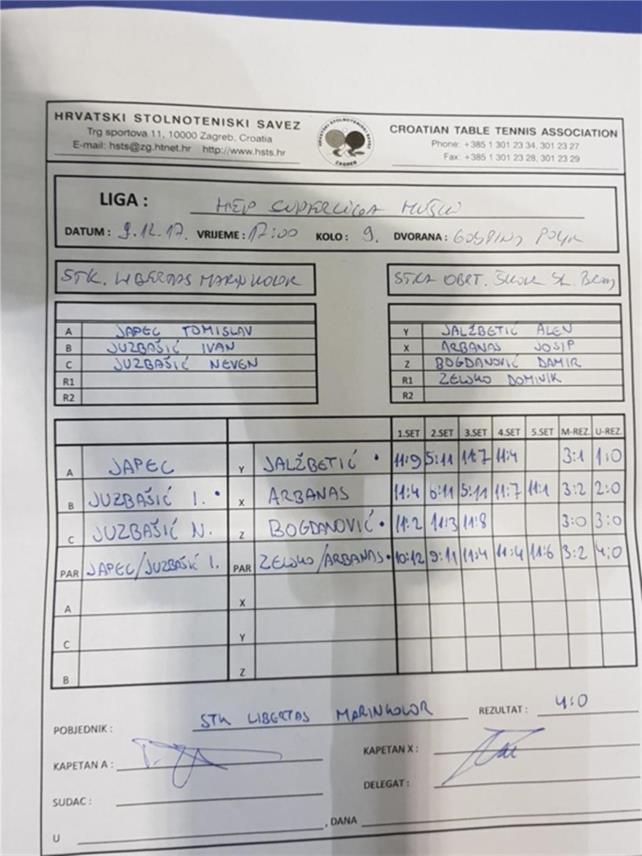 HRVATSKI STOLNOTENISKI SAVEZ
Trg sportova 11, 10000 Zagreb, Croatia
E-mail: hsts@zg.htnet.hr http://www.hsts.hr
HRVATSKI STOLNOTENISKI SAVEZ
ZAGREB
CROATIAN TABLE TENNIS ASSOCIATION
Phone: +385 1 301 23 34, 301 23 27
Fax: +385 1 301 23 28, 301 23 29
LIGA : HEP SUPERLIGA MUŠKI
DATUM : 9.12.17. VRIJEME : 17:00 KOLO : 9. DVORANA : GOSPINO POLJE
STK. LIBERTAS MARINKOLOR
STKA OBRT. ŠKOLA SL. BROD
A JAPEC TOMISLAV
B JUZBAŠIĆ IVAN
C JUZBAŠIĆ NEVEN
R1
R2
Y JALŽBETIĆ ALEN
X ARBANAS JOSIP
Z BOGDANOVIĆ DAMIR
R1 ZELJKO DOMINIK
R2
1.SET 2.SET 3.SET 4.SET 5.SET M-REZ. U-REZ.
A JAPEC Y JALŽBETIĆ • 11:9 5:11 11:7 11:4 3:1 1:0
B JUZBAŠIĆ I. • X ARBANAS 11:4 6:11 5:11 11:7 11:1 3:2 2:0
C JUZBAŠIĆ N. Z BOGDANOVIĆ • 11:2 11:3 11:8 3:0 3:0
PAR JAPEC/JUZBAŠIĆ I. PAR ZELJKO/ARBANAS • 10:12 9:11 11:4 11:4 11:6 3:2 4:0
A X
C Y
B Z
POBJEDNIK : STK LIBERTAS MARINKOLOR REZULTAT : 4:0
KAPETAN A : KAPETAN X :
SUDAC : DELEGAT :
U , DANA